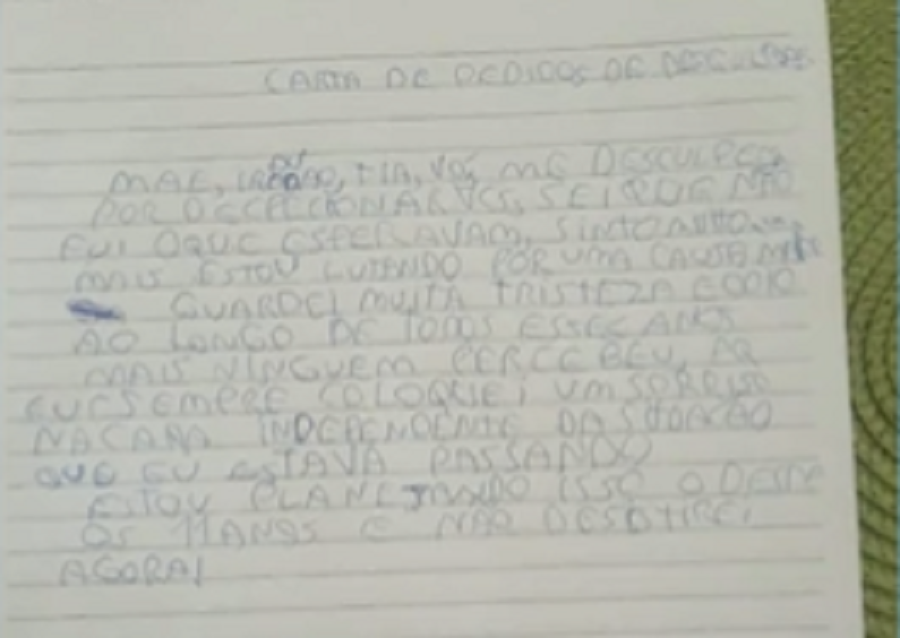 CARTA DE PEDIDOS DE DESCULPAS
MÃE, TIA, VÓ, ME DESCULPEM
POR DECEPCIONAR VCS, SEI QUE NÃO
FUI OQUE ESPERAVAM, SINTO MUITO
MAIS ESTOU LUTANDO POR UMA CAUSA
GUARDEI MUITA TRISTEZA E ODIO
AO LONGO DE TODOS ESSES ANOS
MAIS NINGUEM PERCEBEU,
SEMPRE COLOQUEI UM SORRISO
NA CARA INDEPENDENTE DA SITUAÇÃO
QUE EU ESTAVA PASSANDO
ESTOU PLANEJANDO DESDE
OS 11 ANOS E NÃO DESISTIREI
AGORA!